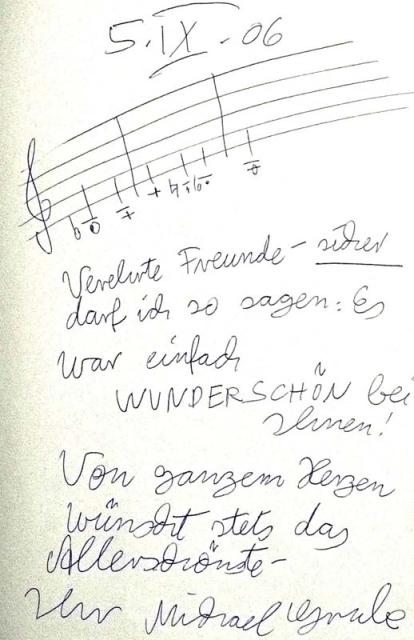 5. IX. 06
Verehrte Freunde – sicher
darf ich so sagen: Es
war einfach
WUNDERSCHÖN bei
Ihnen!
Von ganzem Herzen
wünscht stets das
Allerschönste –
Ihr Michael